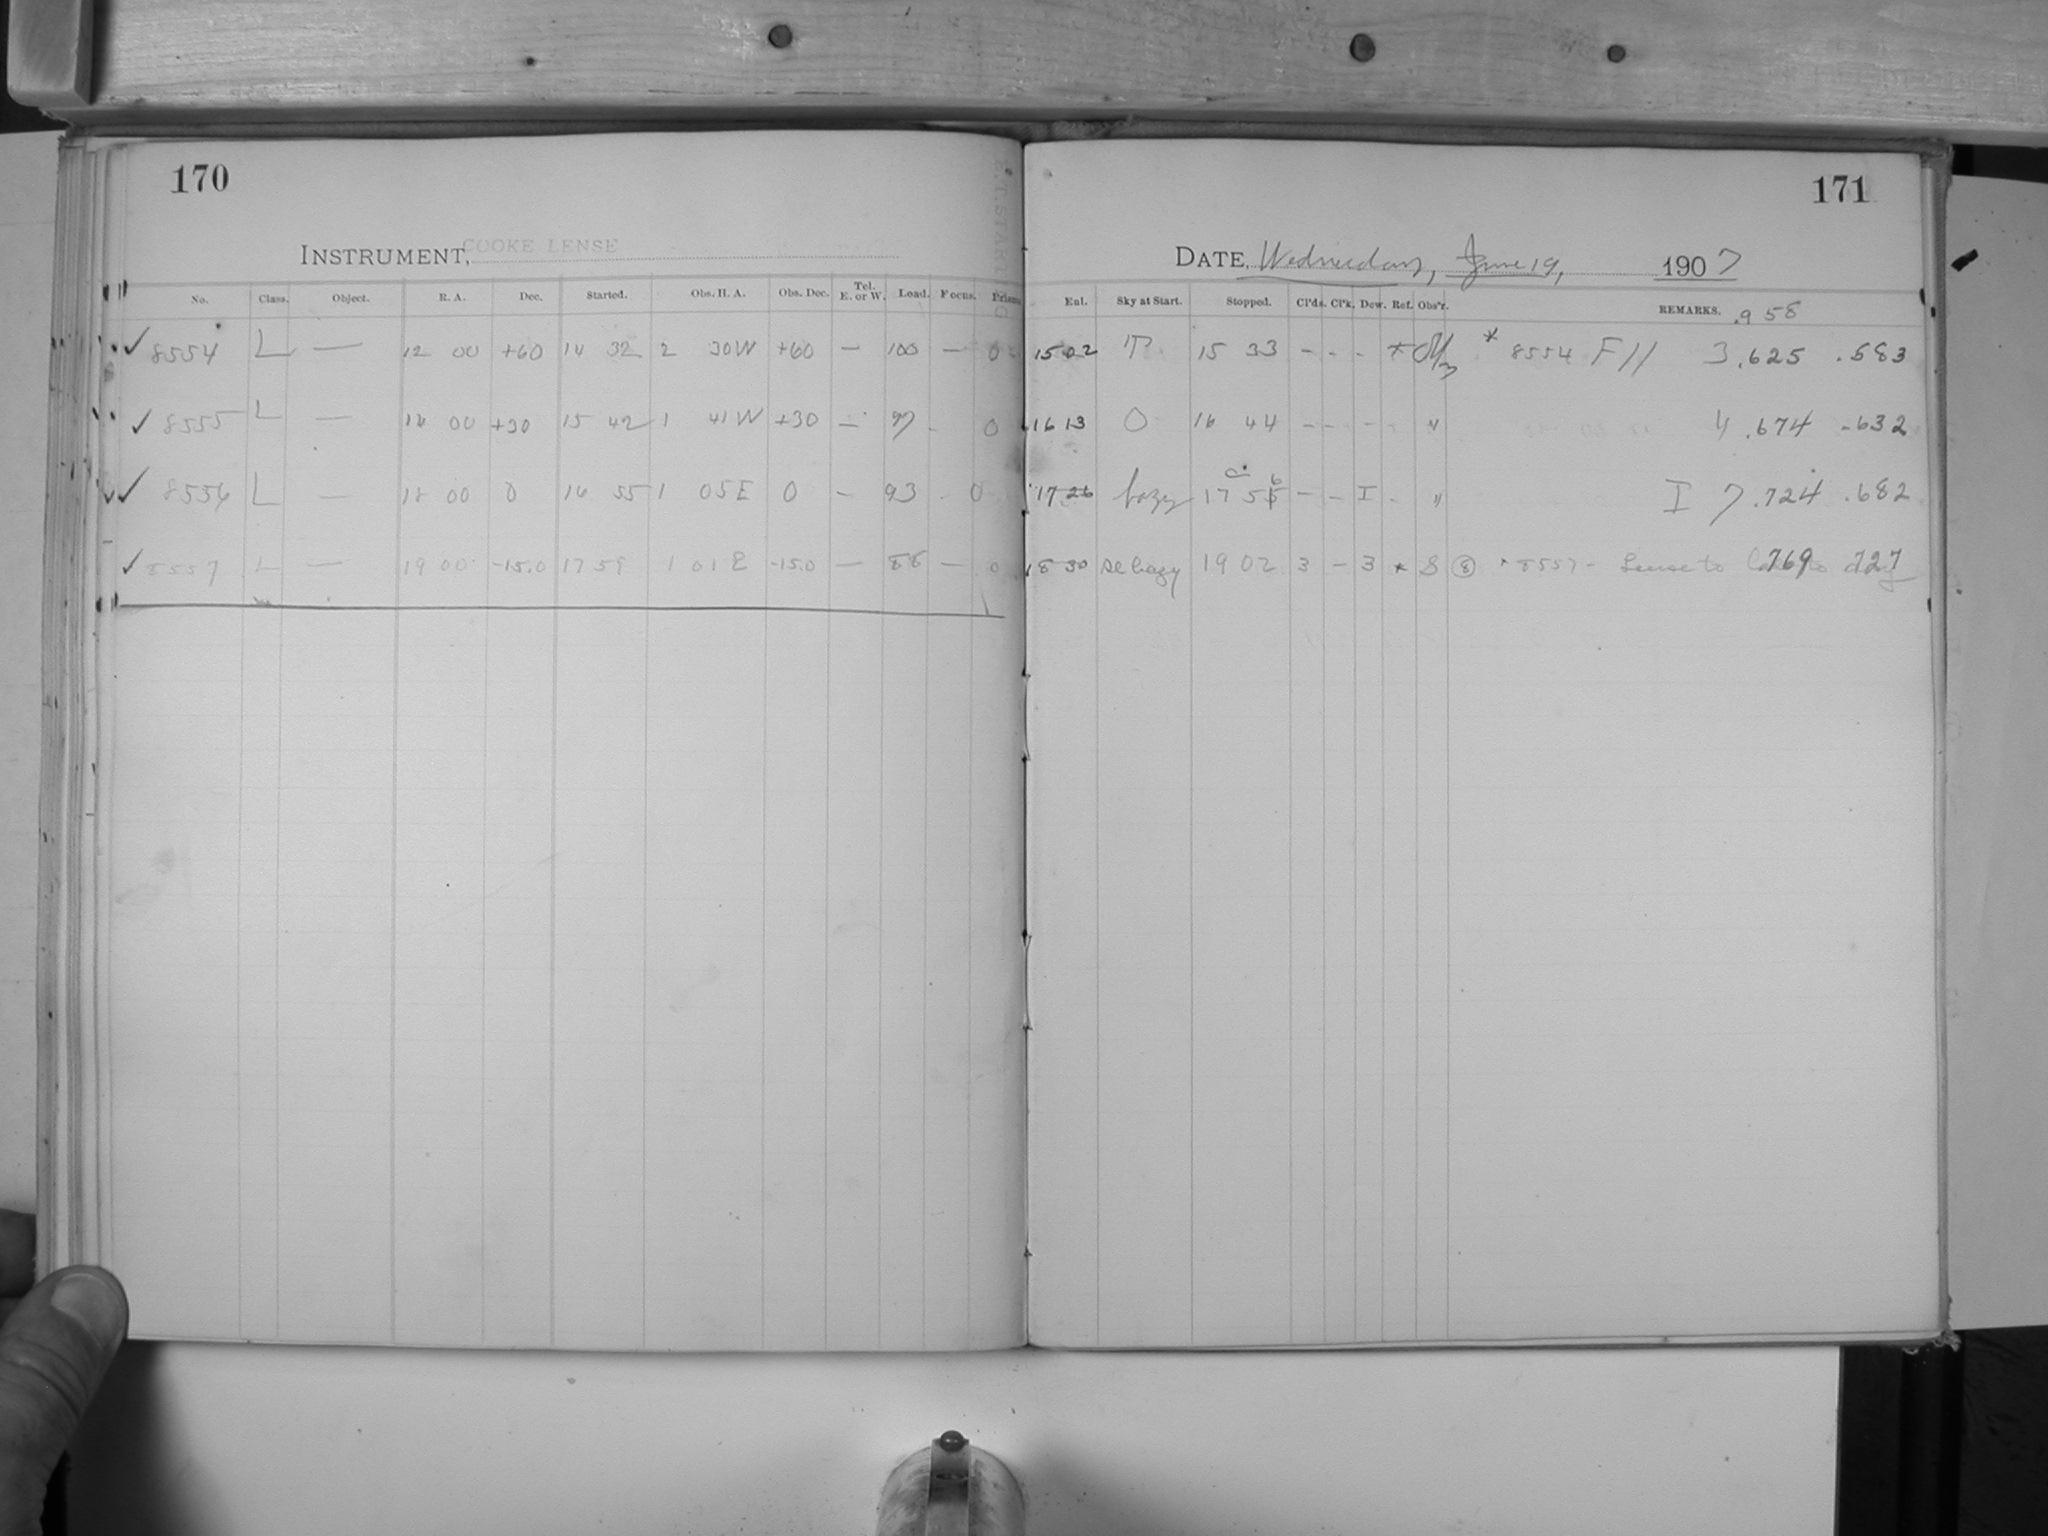 170
INSTRUMENT, COOKE LENSE
No. Class. Object. R. A. Dec. Started. Obs. H. A. Obs. Dec. Tel. E. or W. Load. Focus. Prisms
✓ 8554 L — 12 00 +60 14 32 2 30W +60 — 100 — 0
✓ 8555 L — 14 00 +30 15 42 1 41W +30 — 97 - 0
✓ 8556 L — 18 00 0 16 55 1 05E 0 — 93 - 0
✓ 8557 L — 19 00 -15.0 17 59 1 01E -15.0 — 88 — 0
171
DATE, Wednesday, June 19, 1907
Enl. Sky at Start. Stopped. Cl'ds. Cl'k. Dew. Ref. Obs'r. REMARKS. .958
15 02 15 33 - - - * * 8554 F 11 3 .625 .583
16 13 0 16 44 - - - - " 4 .674 .632
17 26 hazy 17 56 - - I - " I 7 .724 .682
18 30 se hazy 19 02 3 - 3 * S (8) * 8557 - Lense to 769 727